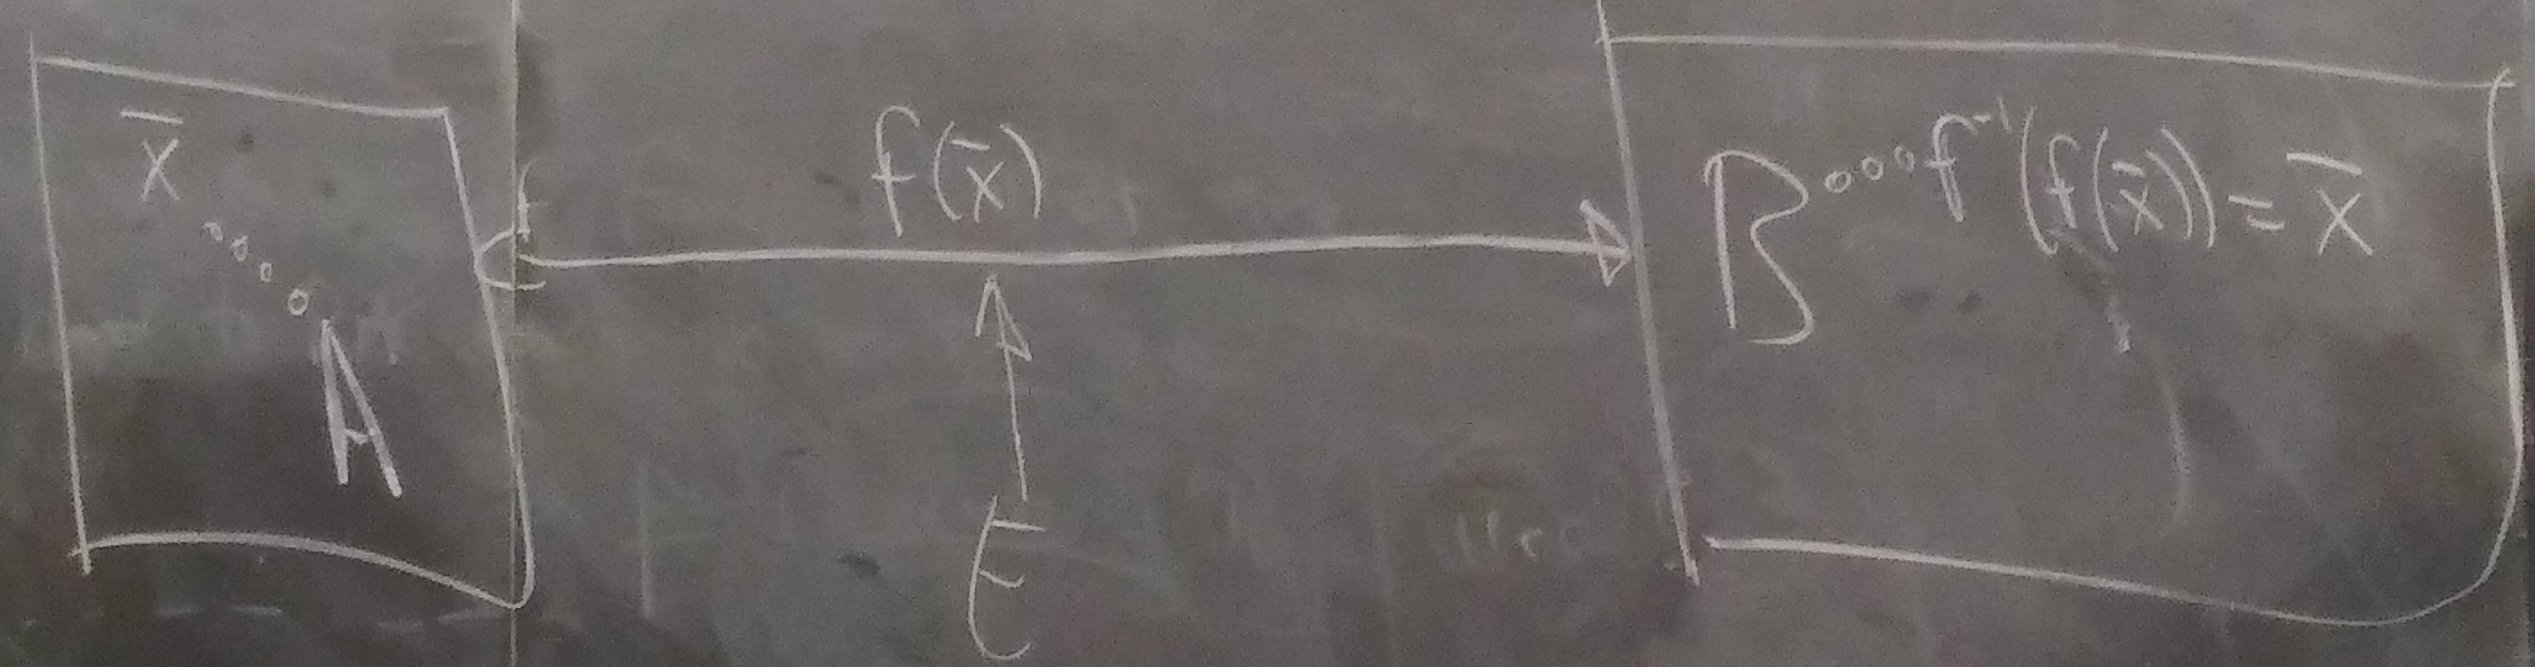 x̄
A
f(x̄)
E
B
f⁻¹(f(x̄)) = x̄